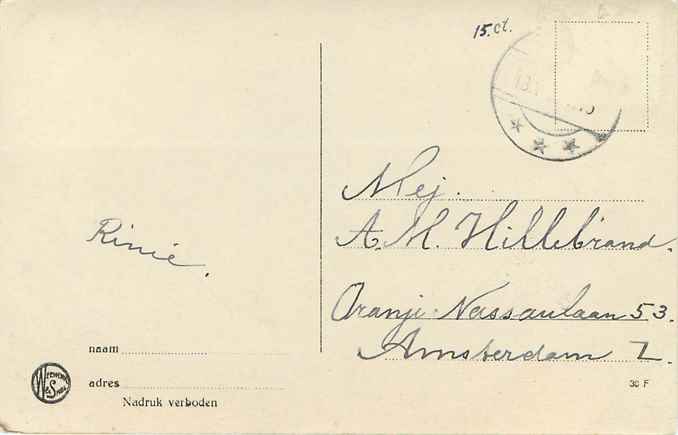 15.ct.
Mej.
A. M. Hillebrand.
Oranje Nassaulaan 53.
Amsterdam Z.
Rinie.
naam
adres
Nadruk verboden
30 F